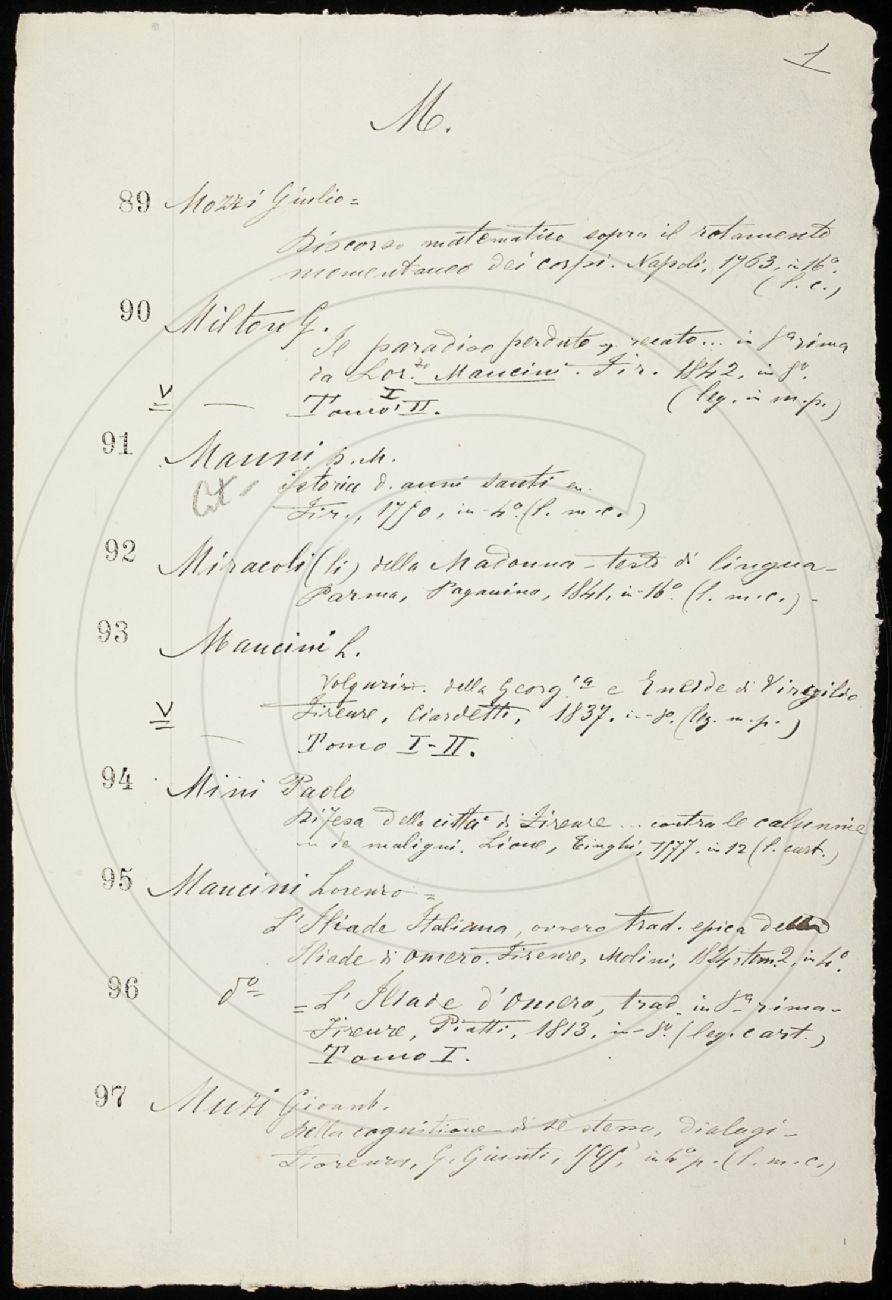 1
M.
89 Mozzi Giulio =
Discorso matematico sopra il rotamento
momentaneo dei corpi. Napoli, 1763, in 16°.
(l. c.)
90 Milton G.
Il paradiso perduto, recato... in 8ª rima
da Lor.zo Mancini. Fir. 1842, in 8°.
V — Tomo I II. (leg. in m.p.)
91 Manni D. M.
Cit - Istoria d. anni santi
Fir., 1750, in-4°. (l. m. c.)
92 Miracoli (li) della Madonna - testo di lingua -
Parma, Paganino, 1841, in-16° (l. m.c.) -
93 Mancini L.
Volgariz. della Georg.ca e Eneide di Virgilio
Firenze, Ciardetti, 1837. in-8°. (leg. m. p.)
V — Tomo I-II.
94 Mini Paolo
Difesa della città di Firenze ... contra le calunnie
de maligni. Lione, Tinghi, 1577. in 12 (l. cart.)
95 Mancini Lorenzo =
L'Iliade Italiana, ovvero trad. epica della
Iliade di Omero. Firenze, Molini, 1824, tom. 2, in 4°.
96 d° = L'Iliade d'Omero, trad. in 8ª rima -
Firenze, Piatti, 1813, in-8°. (leg. cart.)
Tomo I.
97 Muzi Gioanb.
Della cognitione di se stesso, dialogi -
Fiorenza, G. Giunti, 1595, in 4° p. (l. m.c.)